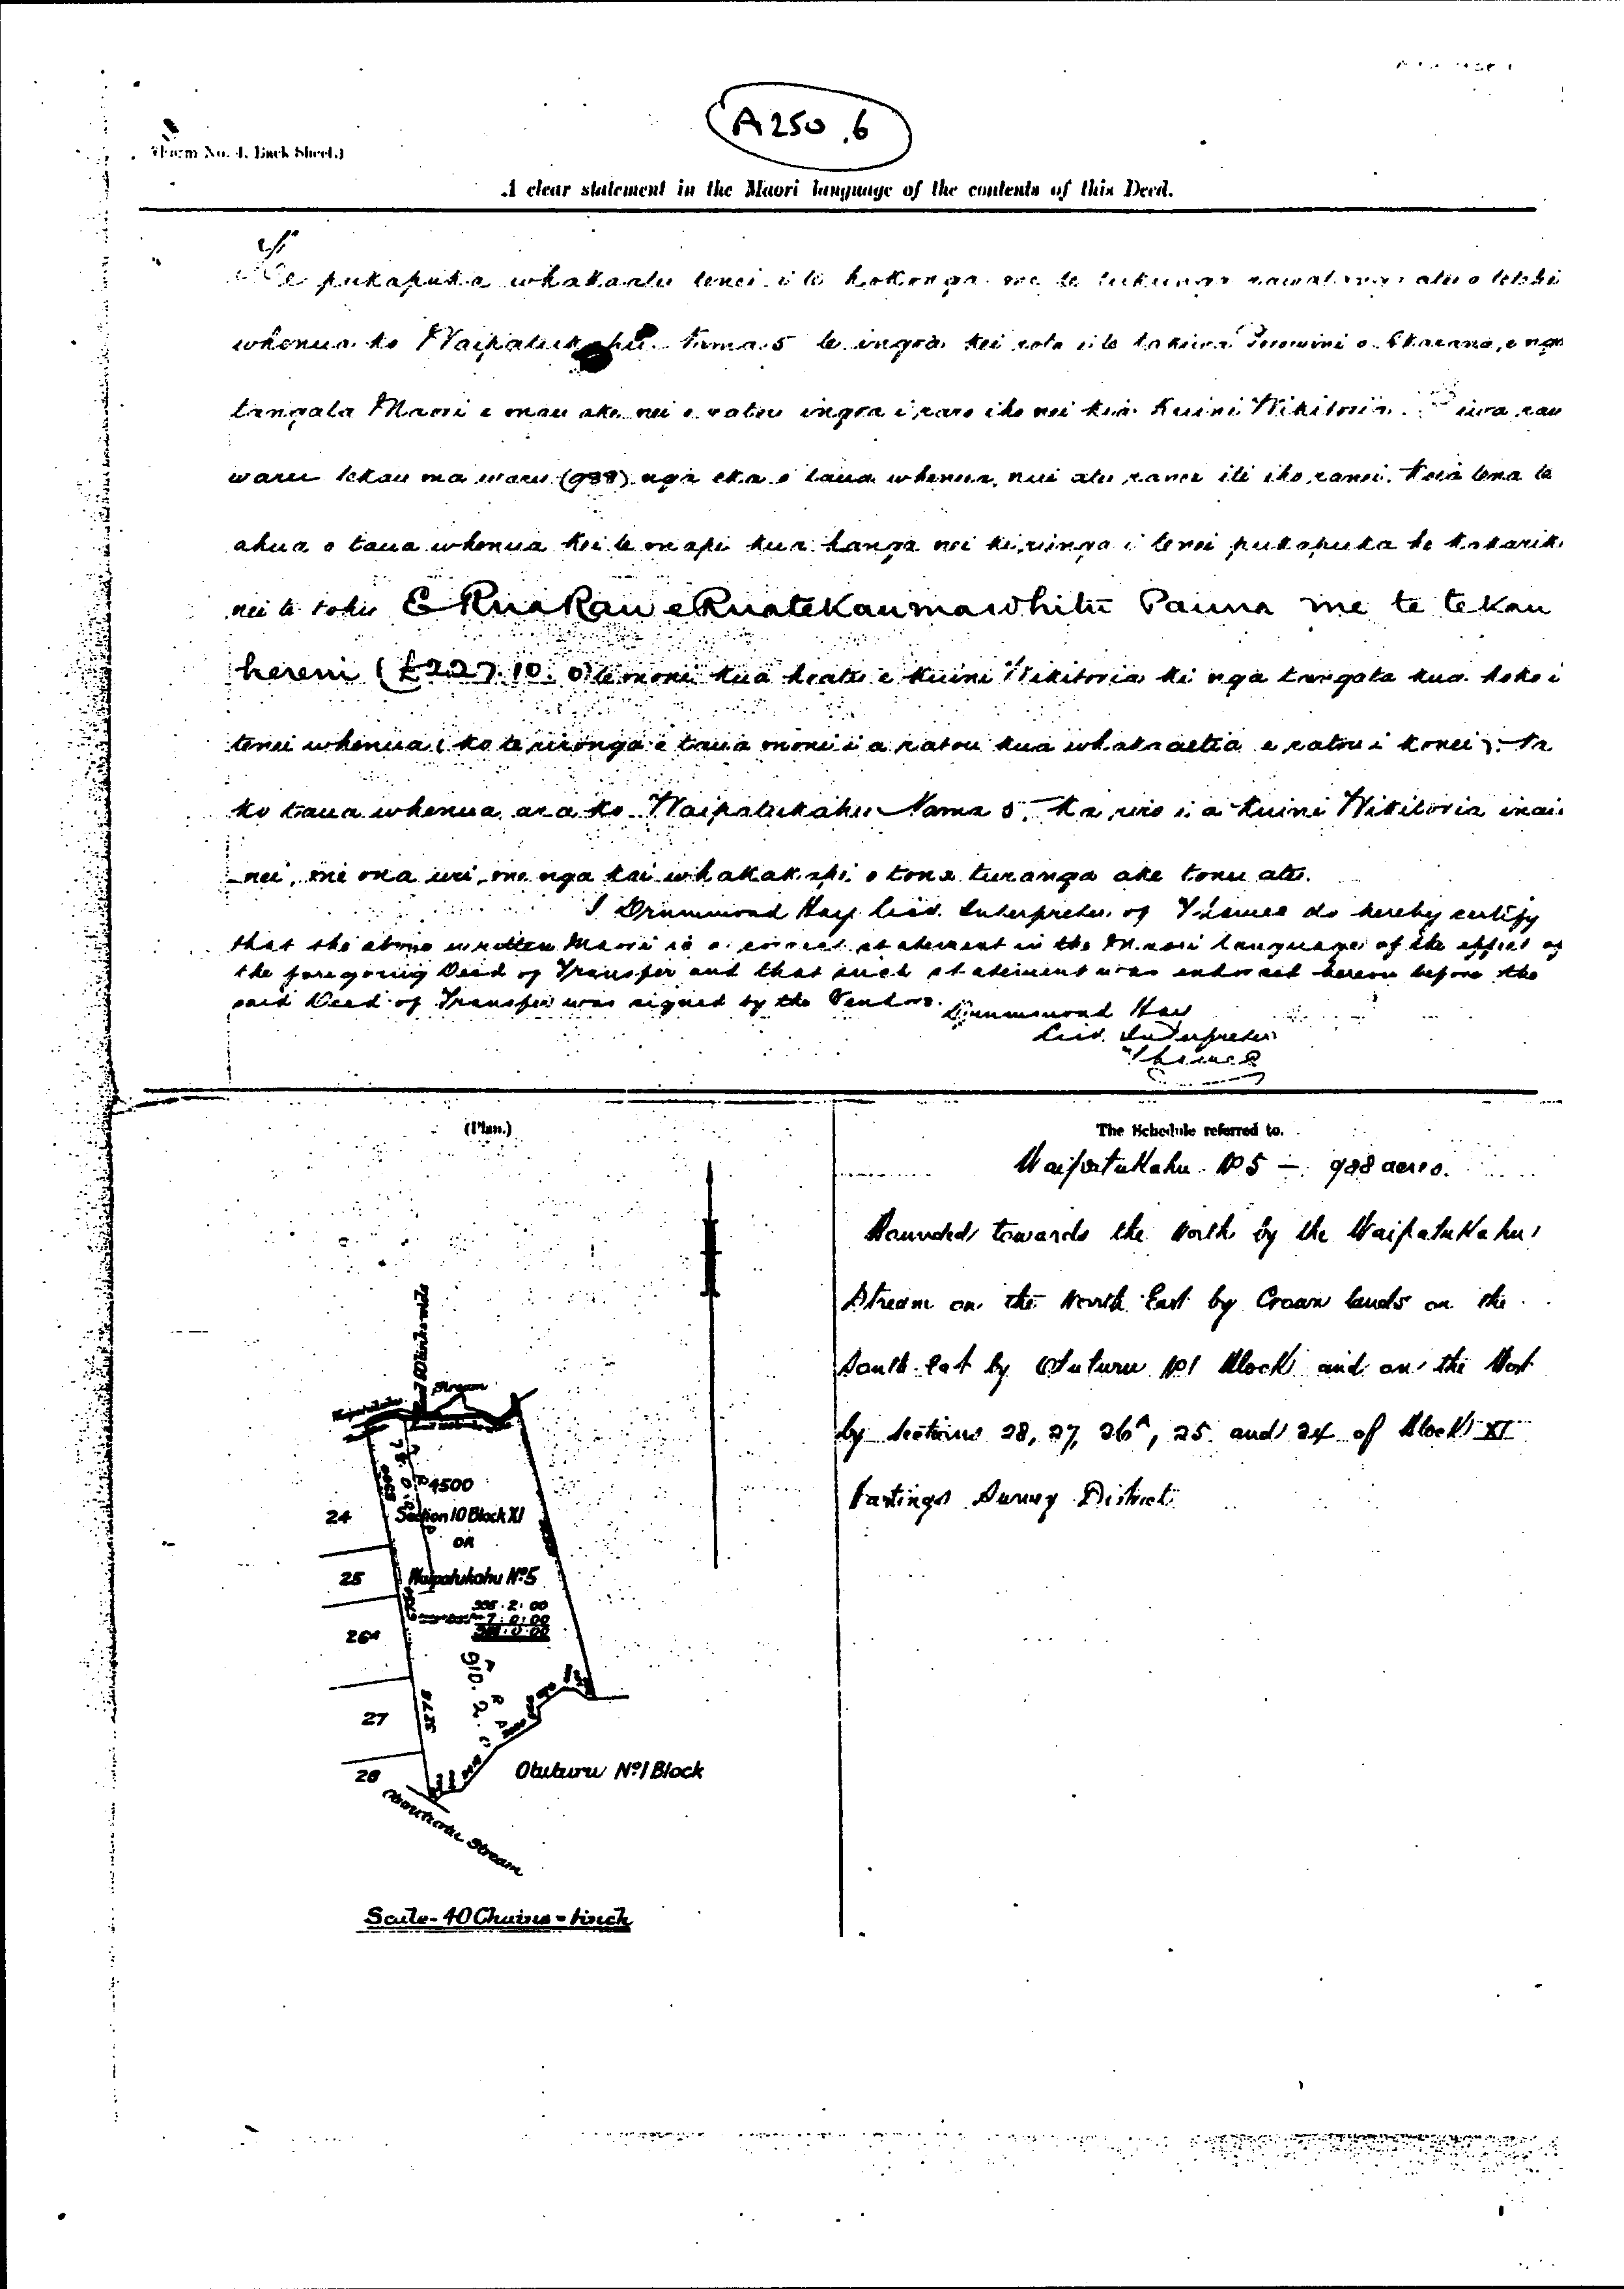 A250.6
(Form No. 4. Back Sheet.)
A clear statement in the Maori language of the contents of this Deed.
He pukapuka whakaatu tenei i te hokonga me te tukunga rawatanga atu o tetehi
whenua ko Waipatukahu Nama 5 te ingoa kei roto i te takiwa Porowini o Akarana, e nga
tangata Maori e mau ake nei o ratou ingoa i raro iho nei kia Kuini Wikitoria. iwa rau
waru tekau ma waru (988) nga eka o taua whenua, nui atu ranei iti iho ranei. Koia tena te
ahua o taua whenua kei te mapi kua hanga nei ki runga i tenei pukapuka he kakariki
nei te tohu E Rua Rau e Rua te Kau ma whitu Pauna me te tekau
hereni (£227.10.0) te moni kua hoatu e Kuini Wikitoria ki nga tangata kua hoko i
tenei whenua (ko te rironga o taua moni i a ratou kua whakaaetia e ratou i konei). Na
ko taua whenua ara ko Waipatukahu Nama 5. Ka riro i a Kuini Wikitoria inaia
nei, me ona uri, me nga kai whakakapi o tona turanga ake tonu atu.
I Drummond Hay Lics. Interpreter of Thames do hereby certify
that the above written Maori is a correct statement in the Maori language of the effect of
the foregoing Deed of Transfer and that such statement was endorsed hereon before the
said Deed of Transfer was signed by the Vendors.
Drummond Hay
Lics. Interpreter
Thames
(Plan.)
Stream
24
4500
Section 10 Block XI
OR
25
Waipatukahu No. 5
7:0:00
26A
910.2.0
27
3278
28
Otuturu No. 1 Block
Stream
Scale - 40 Chains = 1 inch
The Schedule referred to.
Waipatukahu No 5 — 988 acres.
Bounded towards the North by the Waipatukahu
Stream on the North East by Crown lands on the
South East by Otuturu No 1 Block and on the West
by Sections 28, 27, 26A, 25 and 24 of Block XI
Hastings Survey District